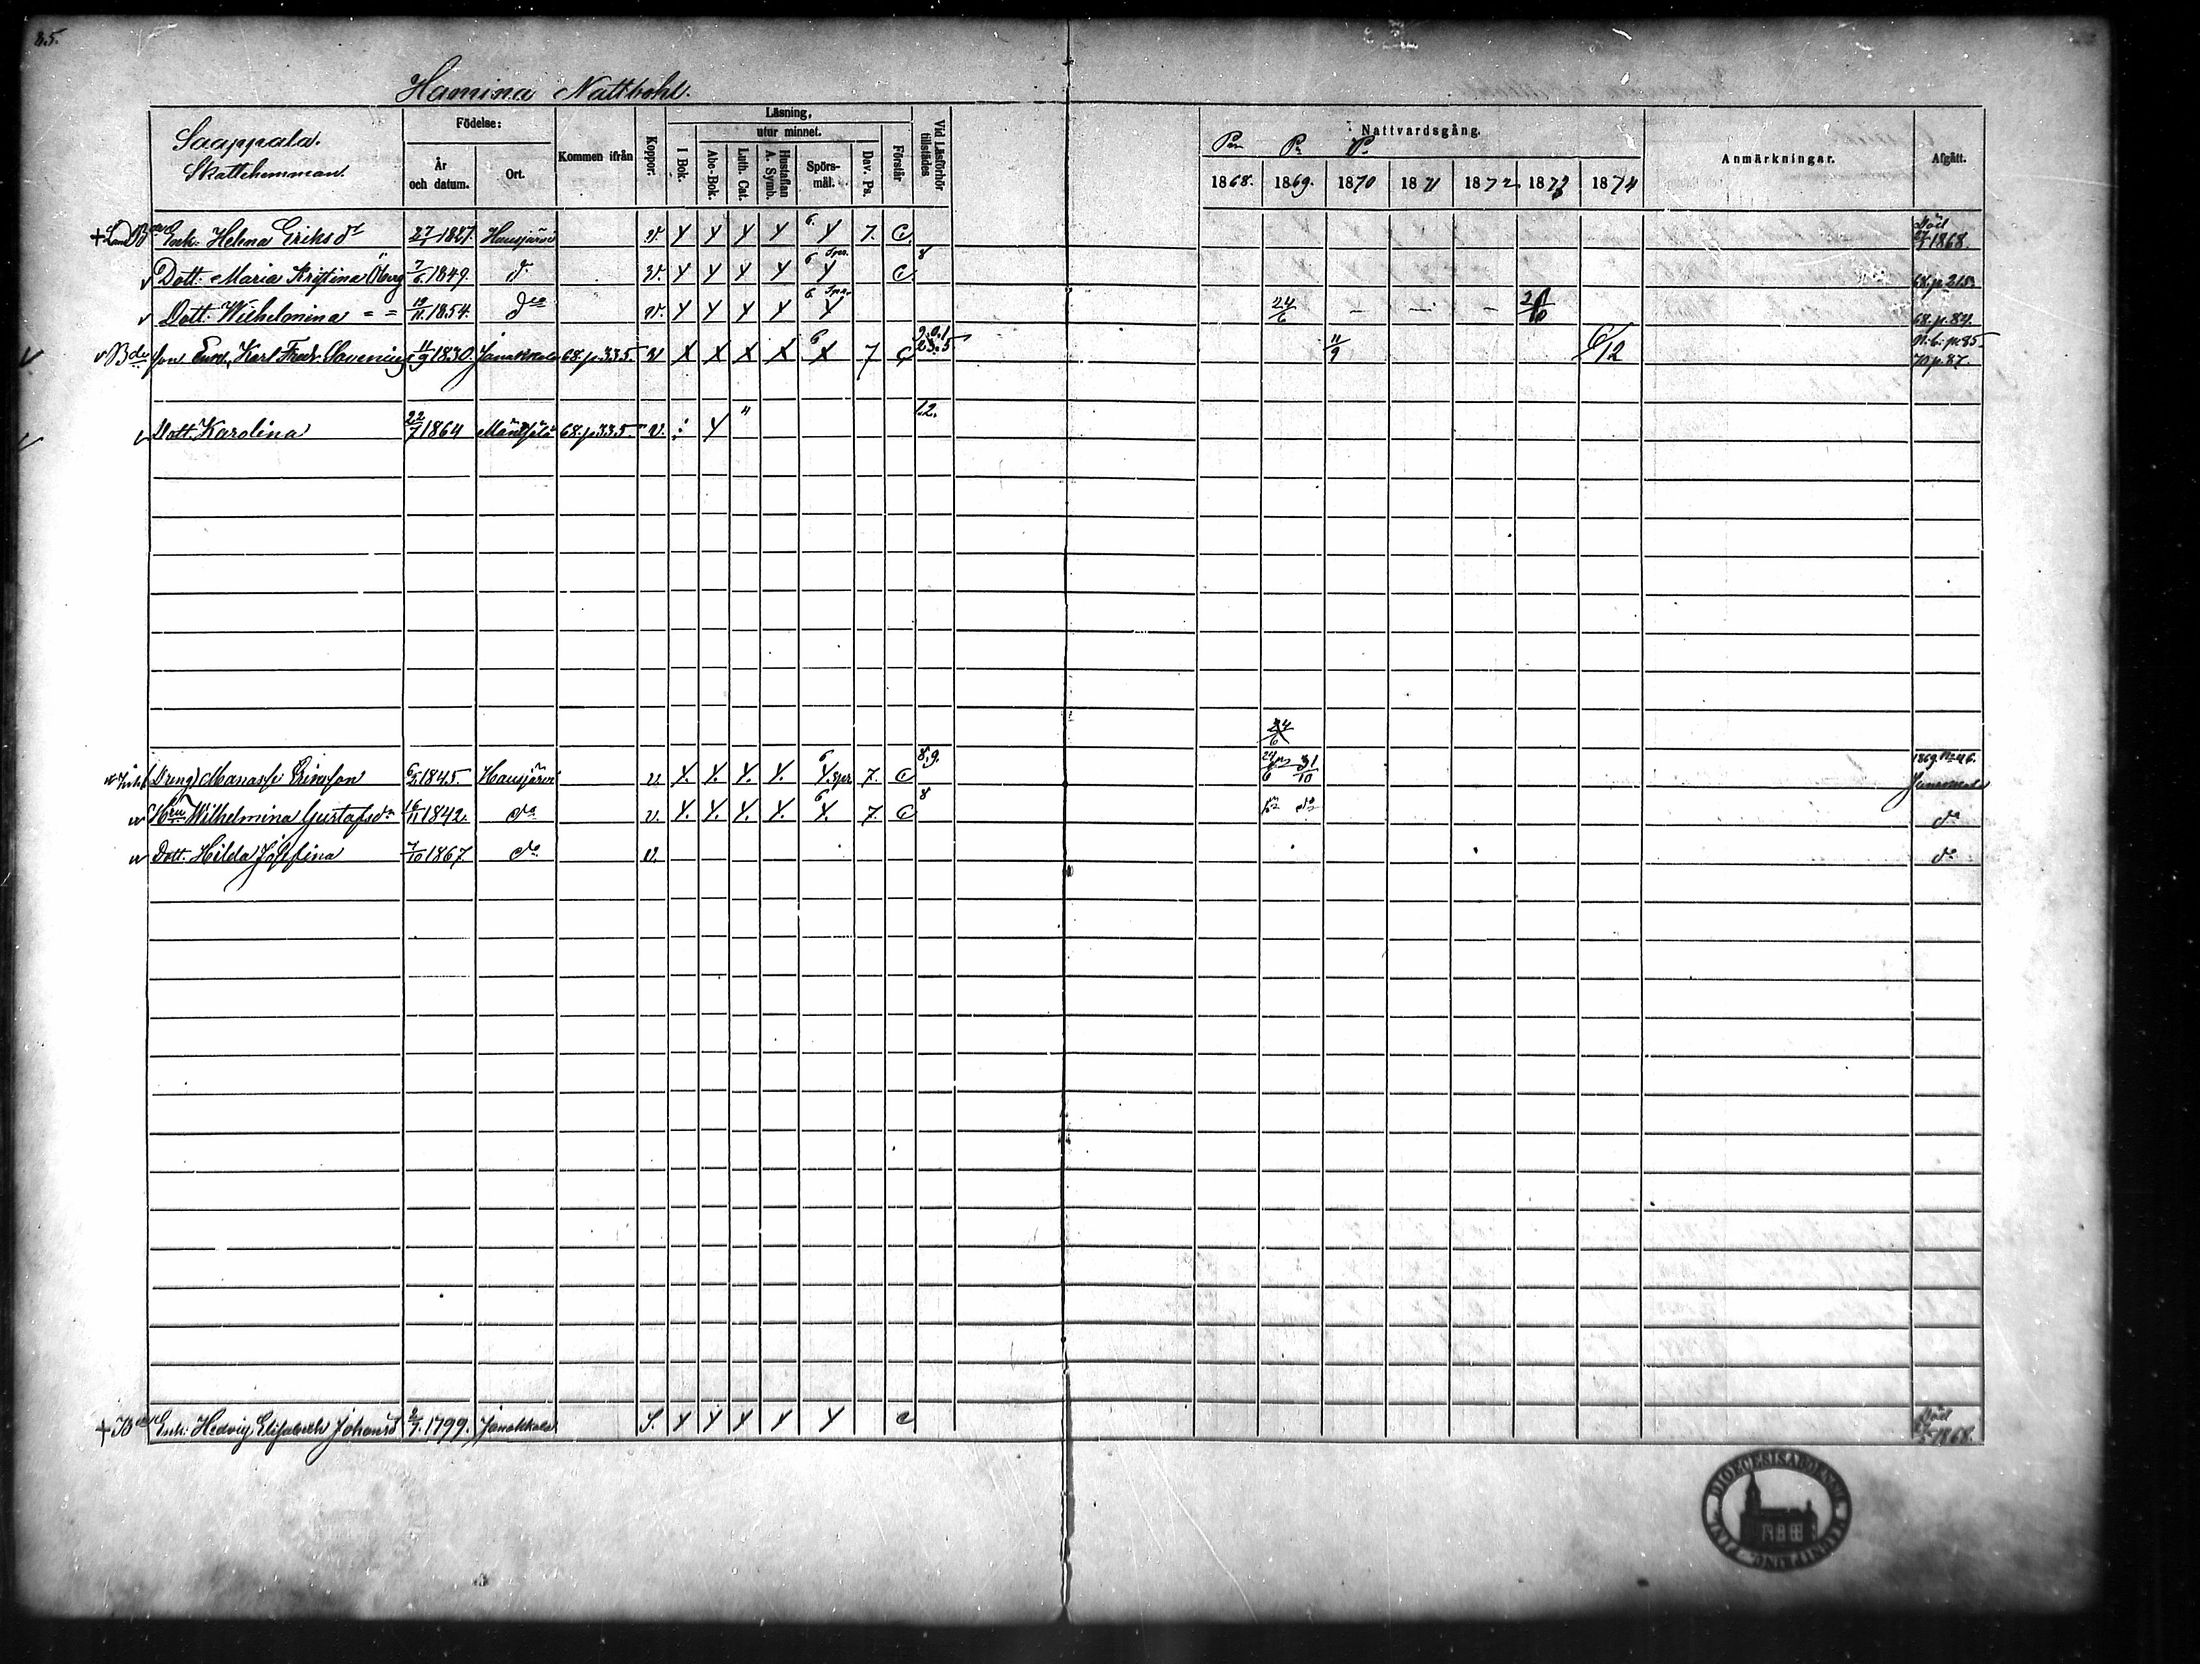 85.
Hamina Nattbohl.
Saappala.
Skattehemman
Födelse:
År och datum.
Ort.
Kommen ifrån
Koppor.
Läsning,
I Bok.
utur minnet.
Abc-Bok.
Luth. Cat.
Hustaflan A. Symb.
Spörsmål.
Dav. Ps.
Förstår
Vid Läsförhör tillstädes
Nattvardsgång.
1868. 1869. 1870 1871 1872 1873 1874
Anmärkningar.
Afgått.
Enk. Helena Eriksdr 27/1 1827. Hausjärvi v. 7. C. Död 27/1 1868.
Dott. Maria Kristina Öberg 7/6 1849. do v. 6 C. 8 68.p.215.
Dott. Wilhelmina = = 19/11 1854. do v. 6 24/6 68.p.84.
Karl Fredr. Savenius 11/9 1830. Janakkala 68.p.335. v 6 7 C 11/9 6/12 70 p. 87.
Dott. Karolina 22/7 1864 Mäntsälä 68.p.335. v. 12.
Dreng Manasse Eriksson 6/5 1845. Hausjärvi v. 6 7. C 8.9. 24/6 31/10 1869.
Hru Wilhelmina Gustafsdr 16/11 1842. do v. 6 7. C 8 do
Dott. Hilda Josefina 7/10 1867. do v. do
Enk. Hedvig Elisabeth Johansd 2/7 1799. Janakkala S. C Död 1868.
DIOECESIS ABOENSIS